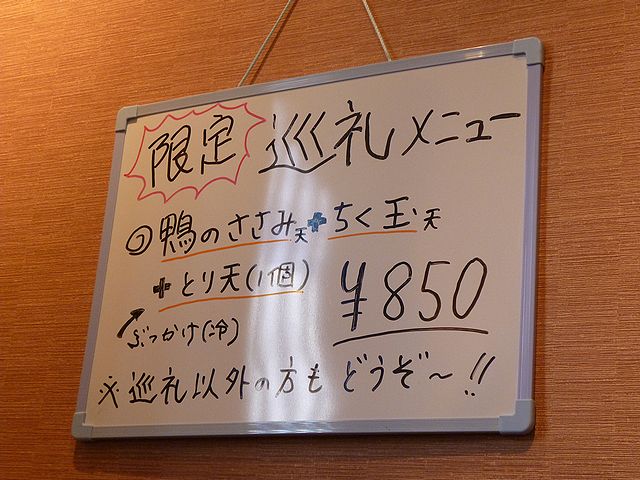 限定 巡礼メニュー
◎鴨のささみ天+ちく玉天
+とり天(1個) ¥850
ぶっかけ(冷)
※巡礼以外の方もどうぞ~!!